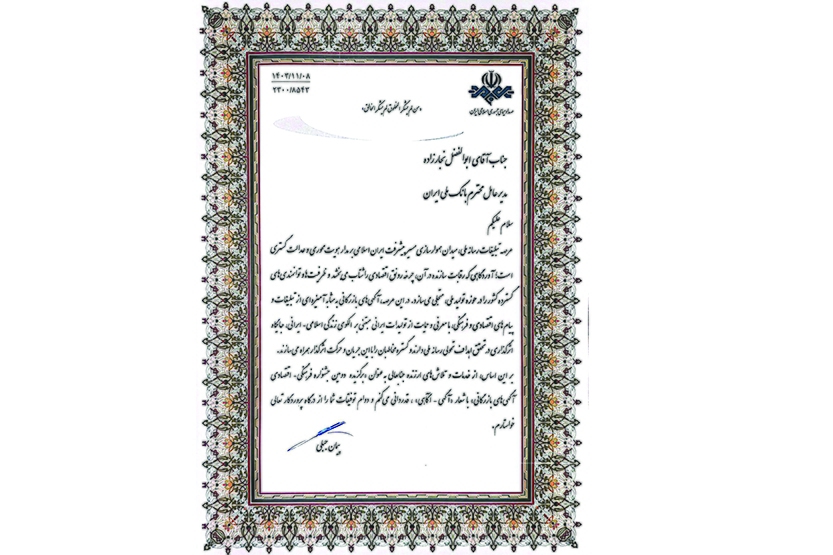 ۱۴۰۳/۱۱/۰۸
۲۳۰۰/۸۵۴۳
صدا و سیمای جمهوری اسلامی ایران
«من لم یشکر المخلوق لم یشکر الخالق»
جناب آقای ابوالفضل نجارزاده
مدیرعامل محترم بانک ملی ایران
سلام علیکم
عرصه تبلیغات رسانه ملی، میدان هموارسازی مسیر پیشرفت ایران اسلامی بر مدار هویت محوری و عدالت گستری
است؛ آوردگاهی که رقابت سازنده در آن، چرخه رونق اقتصادی را شتاب می‌بخشد و ظرفیت‌ها و توانمندی‌های
گسترده کشور را در حوزه تولید ملی، متجلی می‌سازد. در این عرصه، آگهی‌های بازرگانی به مثابه آمیزه‌ای از تبلیغات و
پیام‌های اقتصادی و فرهنگی، با معرفی و حمایت از تولیدات ایرانی مبتنی بر الگوی زندگی اسلامی - ایرانی، جایگاه
اثرگذاری در تحقق اهداف تحولی رسانه ملی دارند و گستره مخاطبان را با این جریان و حرکت اثرگذار همراه می‌سازند.
بر این اساس، از خدمات و تلاش‌های ارزنده جنابعالی به عنوان «برگزیده دومین جشنواره فرهنگی - اقتصادی
آگهی‌های بازرگانی» با شعار «آگهی - آگاهی»، قدردانی می‌کنم و دوام توفیقات شما را از درگاه پروردگار تعالی
خواستارم.
پیمان جبلی